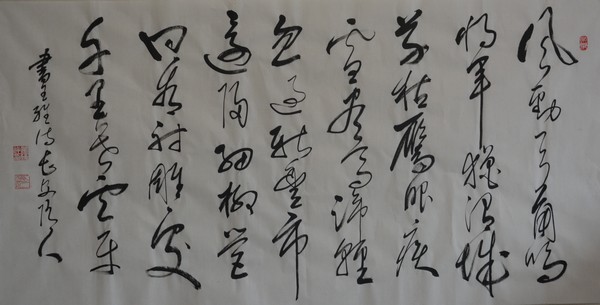 風勁弓角鳴
將軍獵渭城
草枯鷹眼疾
雪盡馬蹄輕
忽過新豐市
還歸細柳營
回看射雕處
千里暮雲平
書王維詩